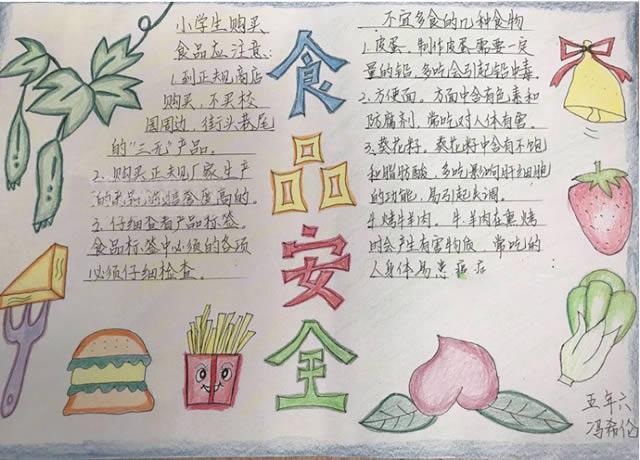 小学生购买
食品应注意:
1.到正规商店
购买,不买校
园周边,街头巷尾
的“三无”产品。
2.购买正规厂家生产
的 信誉度高的。
3.仔细查看产品标签。
食品标签中必须的各项
必须仔细检查。
食
品
安
全
不宜多食的几种食物
1.皮蛋。制作皮蛋需要一定
量的铅,多吃会引起铅中毒。
2.方便面。方面中含有色素和
防腐剂,常吃对人体有害。
3.葵花籽。葵花籽中含有不饱
和脂肪酸,多吃影响肝细胞
的功能,易引起失调。
4.烤牛羊肉。牛羊肉在熏烤
时会产生有害物质,常吃的
人身体易患
五年六
冯希伦